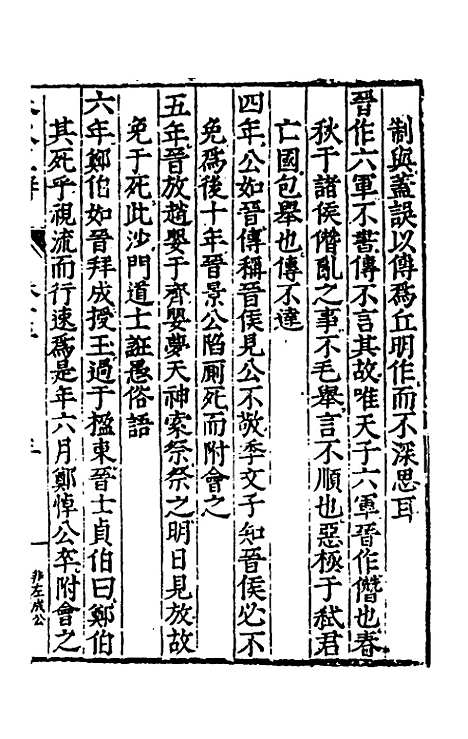 制與蓋誤以傳爲丘明作而不深思耳
晉作六軍不書傳不言其故唯天子六軍晉作僭也春
秋于諸侯僭亂之事不毛舉言不順也惡極于弒君
亡國包舉也傳不達
四年公如晉傳稱晉侯見公不敬季文子知晉侯必不
免爲後十年晉景公陷厠死而附會之
五年晉放趙嬰于齊嬰夢天神索祭祭之明日見放故
免于死此沙門道士誑愚俗語
六年鄭伯如晉拜成授玉過于楹東晉士貞伯曰鄭伯
其死乎視流而行速爲是年六月鄭悼公卒附會之
非左成公